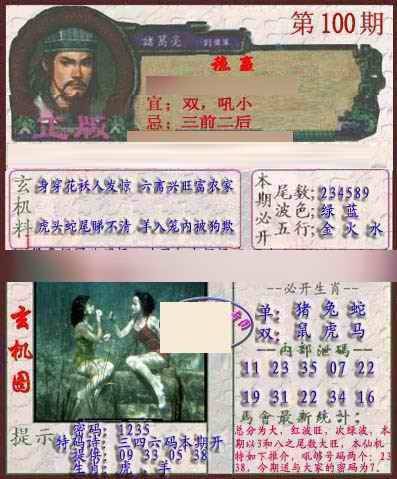 第100期
諸葛亮 劉伯軍
稳赢
宜：双，吼小
忌：三前二后
正版
玄机料
身穿花袄人发惊 六禽兴旺富农家
虎头蛇尾睇不清 羊入笼内被狗欺
本期必开
尾数：234589
波色：绿 蓝
五行：金 火 水
玄机图
必开生肖
单：猪 兔 蛇
双：鼠 虎 马
内部泄码
11 23 35 07 22
19 31 22 34 16
马會最新統計：
总分为大，红波旺，次绿波，本
期以3和八之尾数大旺，本仙机
特如下推介，吼够号码两个：23
38，今期送与大家的密码为7.
提示
密码：1235
特码诗：三四六码本期开
提供：09 33 05 38
生肖：虎，羊